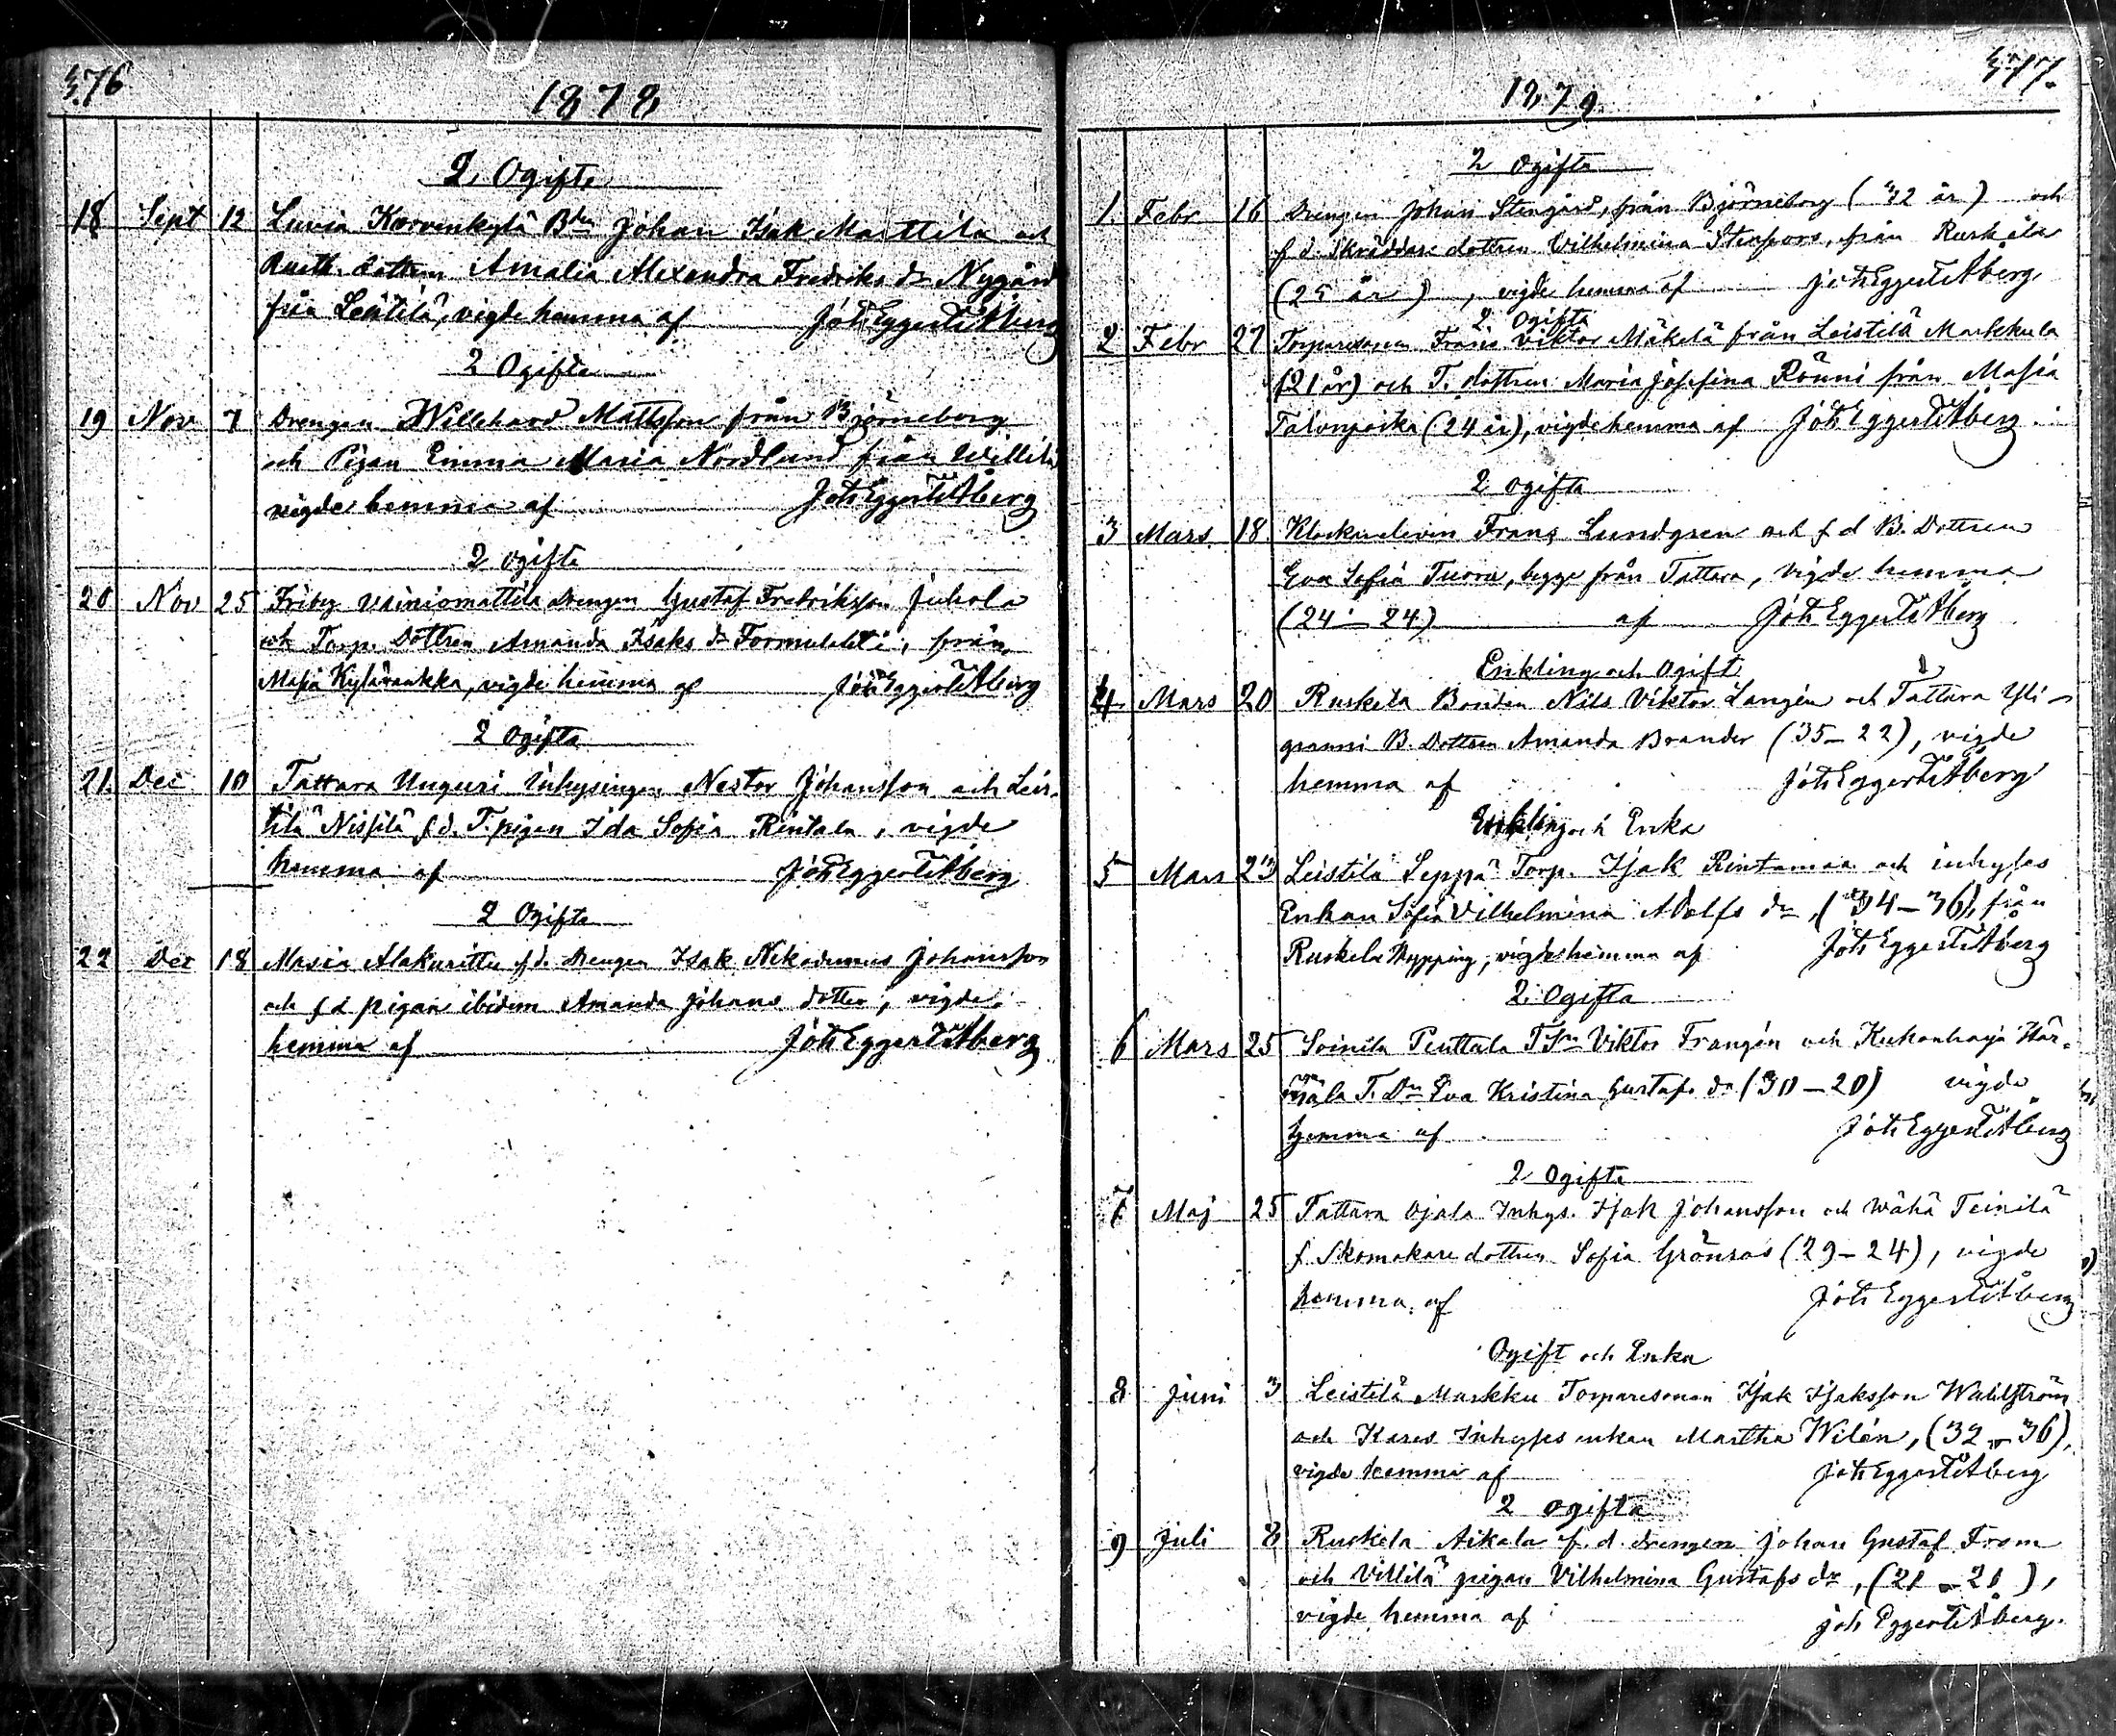 376
1878
2 Ogifte
18 Sept 12 Luvia Korvenkylä Bden Johan Isak Marttila och
dottren Amalia Alexandra Fredriks dr Nygård
från Leistilä, vigde hemma af Joh Eggert Åberg
2 Ogifta
19 Nov 7 Drengen Willehard Mattsson från Björneborg
och Pigan Emma Maria Nordlund från Willilä
vigde hemma af Joh Eggert Åberg
2 ogifta
20 Nov 25 Friby Vainiomattila Drengen Gustaf Fredriksson Juhola
och Torp. Dottren Amanda Isaks dr från
Masia vigde hemma af Joh Eggert Åberg
2 Ogifta
21. Dec 10 Tattara Unguri Inhysingen Nestor Johansson och Leis-
tilä Nissilä f.d. T. pigan Ida Sofia Rintala, vigde
hemma af Joh Eggert Åberg
2 Ogifta
22 Dec 18 Masia Alakurittu f.d. Drengen Isak Nikodemus Johansson
och f d pigan ibidem Amanda Johans dotter, vigde
hemma af Joh Eggert Åberg
377.
1879.
2 Ogifta
1. Febr 16 Drengen Johan Stengård, från Björneborg (32 år) och
f d. Skräddare dottren Wilhelmina Stenfors, från Ruskela
(25 år), vigde hemma af Joh Eggert Åberg
2 Ogifta
2 Febr 27 Torparesonen Frans Viktor Mäkelä från Leistilä Markkula
(21 år) och T. dottren Maria Josefina Rönni från Masia
(24 år), vigde hemma af Joh Eggert Åberg
2 ogifta
3 Mars 18 Klockareleven Frans Lundgren och f d B. Dottren
Eva Sofia Tuora, begge från Tattara, vigde hemma
(24 – 24) af Joh Eggert Åberg
Enkling och Ogift
4 Mars 20 Ruskela Bonden Nils Viktor Langén och Tattara Yli-
B. Dottren Amanda Brander (35–22), vigde
hemma af Joh Eggert Åberg
Enkling och Enka
5 Mars 23 Leistilä Seppä Torp. Isak Rintamaa och inhyses
Enkan Sofia Vilhelmina Adolfs dr, (34–36), från
Ruskela Nypping, vigde hemma af Joh Eggert Åberg
2 Ogifta
6 Mars 25 Soinila Penttala T Sn Viktor Frangén och Kukonharja Här-
T. Dn Eva Kristina Gustafs dr (30–20) vigde
hemma af Joh Eggert Åberg
2 Ogifta
7 Maj 25 Tattara Ojala Inhys. Isak Johansson och Wähä Teinilä
f Skomakare dottren Sofia Grönroos (29–24), vigde
hemma af Joh Eggert Åberg
Ogift och Enka
8 Juni 3 Leistilä Markku Torparesonen Isak Isaksson Wahlström
och Inhyses enkan Martha Wilén, (32–36),
vigde hemma af Joh Eggert Åberg
2 ogifta
9 Juli 8 Ruskela Aikala f. d. drengen Johan Gustaf From
och Villilä pigan Vilhelmina Gustafs dr, (21–21),
vigde hemma af Joh Eggert Åberg.